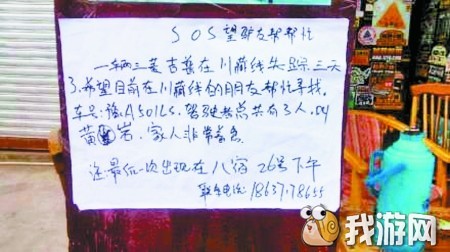 SOS望驴友帮帮忙
一辆三菱吉普在川藏线失踪三天
了,希望目前在川藏线的朋友帮忙寻找。
车号:豫A50ILS,驾驶共总共有3人,叫
黄岩,家人非常着急
这最后一次出现在八宿26号下午
联系电话:18637178655
我游网